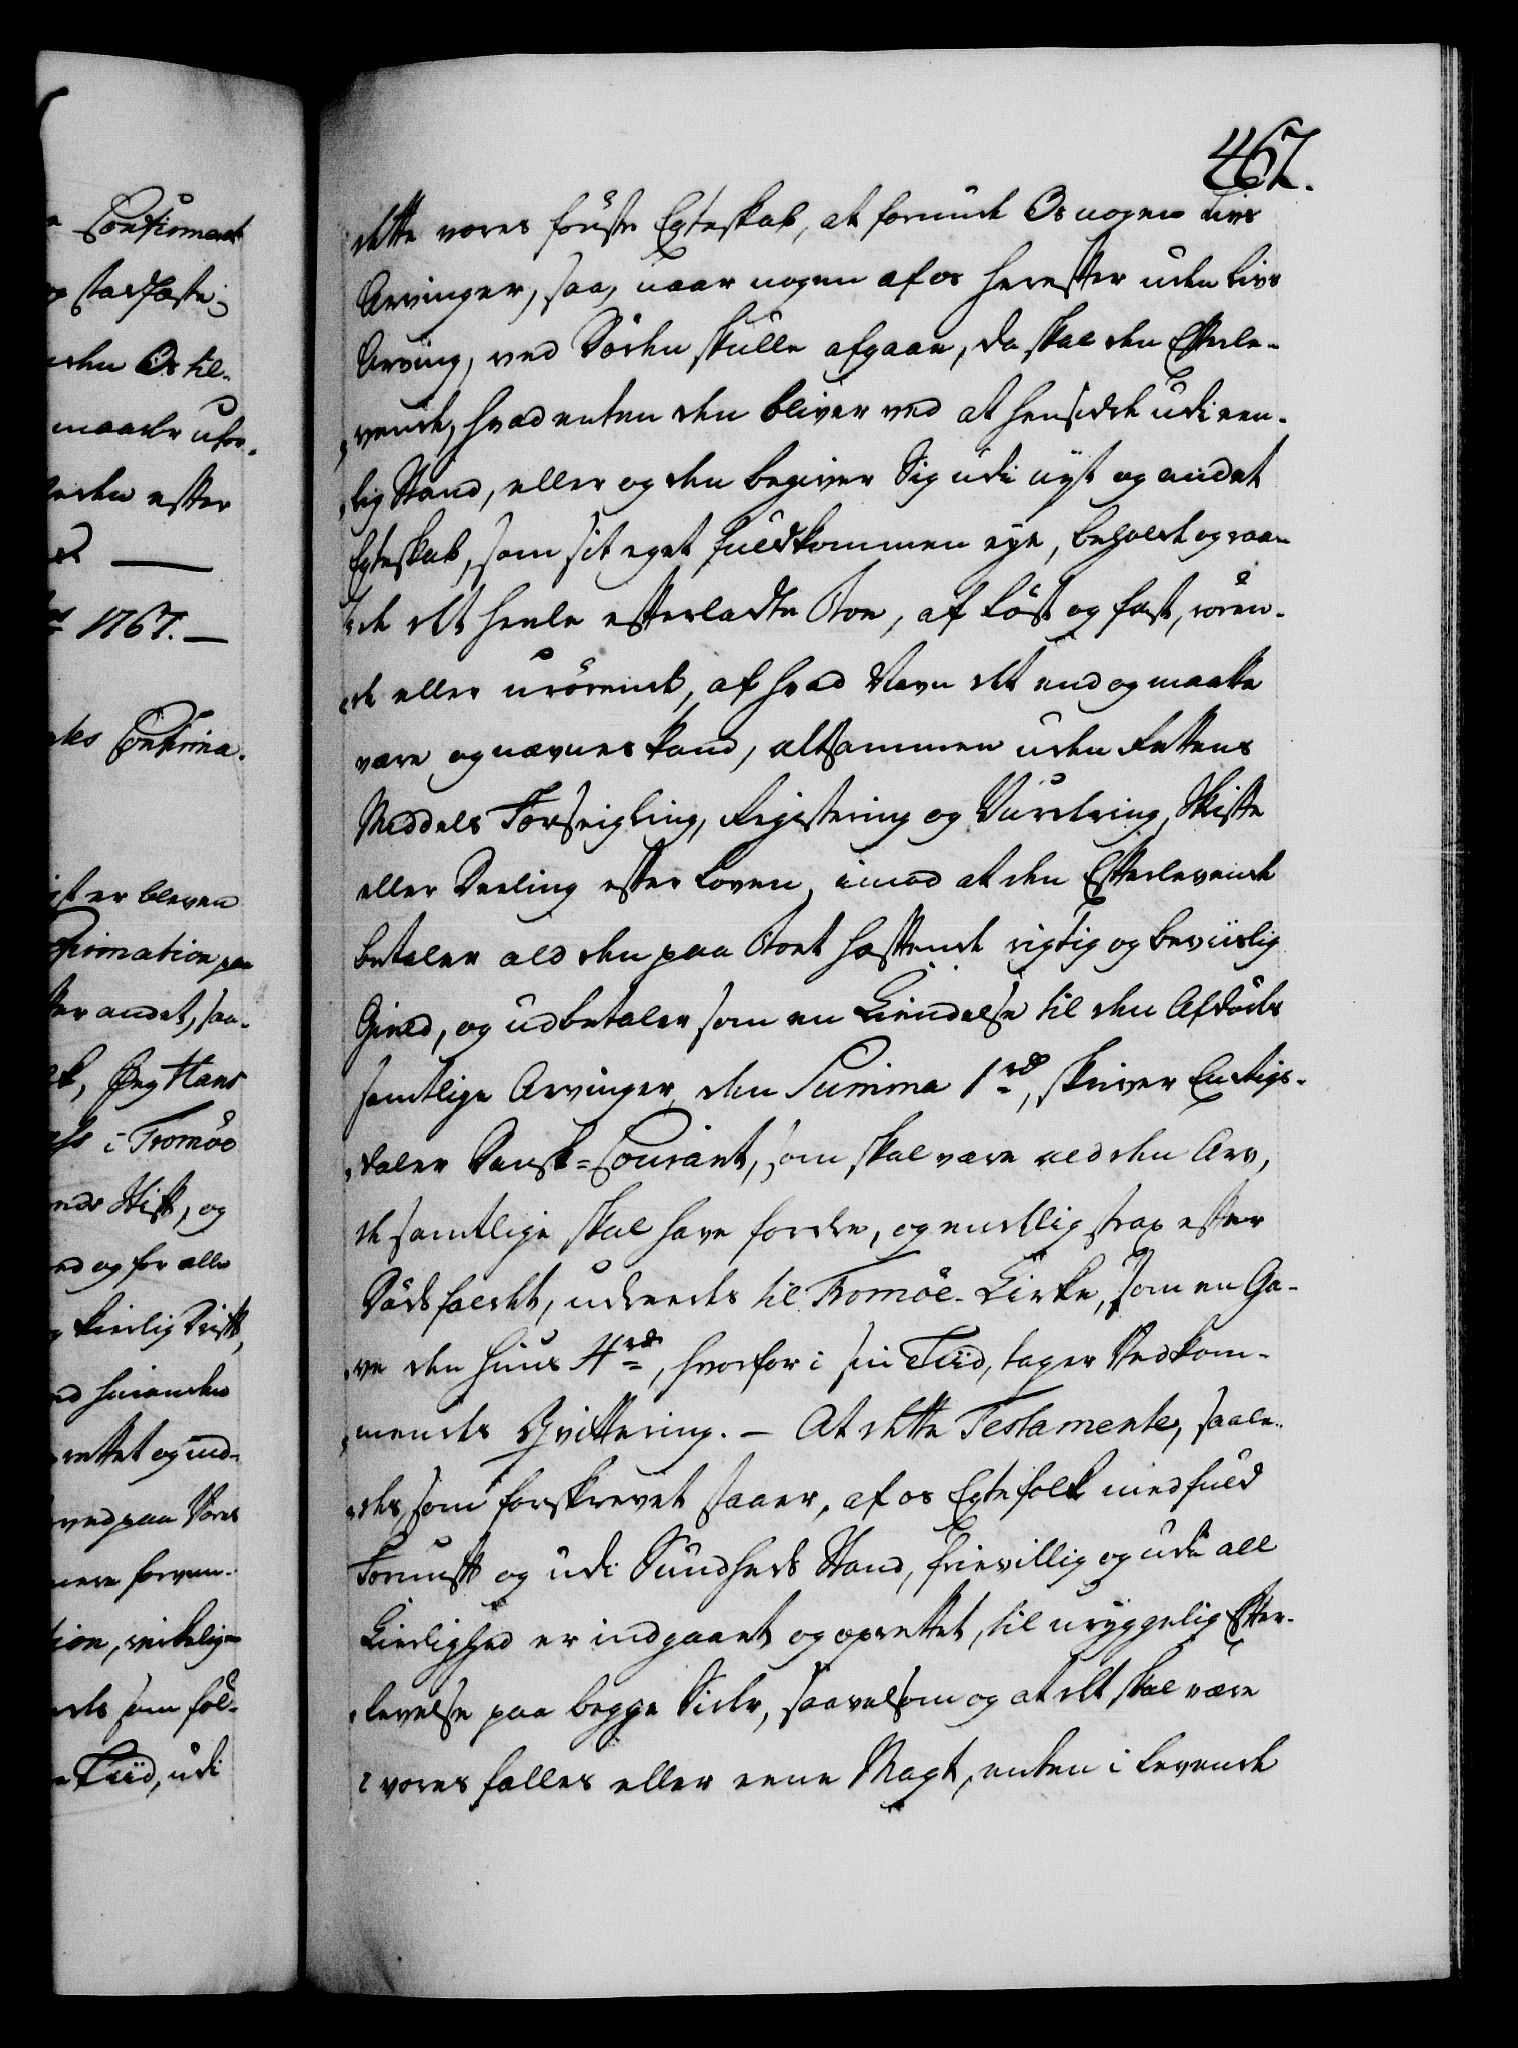 Confirmeret
og stadfæste,
uden Os til-
maader ufor-
ideden efter
1767.
Confirma-
er bleven
Confirmation paa
andet, saa-
Jeg Hans
i Tromøe
Stift, og
og for alle
kierlig Drift,
hinanden
oprettet og ind-
paa Vores
forven-
virkelige
som föl-
Tiid, udi
467.
dette vores förste Egteskab, at forunde Os nogen Livs
Arvinger, saa, naar nogen af os herefter uden Livs
Arving, ved Döden skulle afgaae, da skal den Efterle-
vende, hvad enten den bliver ved at hensidde udi een-
lig Stand, eller og den begiver Sig udi nyt og andet
Egteskab, som sit eget fuldkommen eye, beholde og raa-
de det heele efterladte Boe, af löst og fast, rören-
de eller urörende, af hvad Navn det end og maatte
være og nævnes kand, altsammen uden Rettens
Middels Forseigling, Registering og Vurdering, Skifte
eller Deeling efter Loven, imod at den Efterlevende
betaler ald den paa Boet hæftende rigtig og beviislig
Gield, og udbetaler som en Kiendelse til den Afdödes
samtlige Arvinger, den Summa 1 rd, skriver En Rigs-
daler Dansk=Courant, som skal være ald den Arv,
de samtlige skal have fordre, og endelig strax efter
Dödsfaldet, udreedes til Tromöe-Kirke, som en Ga-
ve den huus 4 rd, hvorfor i sin Tiid, tages Vedkom-
mendes Qvittering. – At dette Testamente, saale-
des, som forskrevet staaer, af os Egtefolk med fuld
Fornuft og udi Sundheds Stand, frievillig og udi all
Kierlighed er indgaaet og oprettet, til uryggelig Efter-
levelse paa begge Sider, saavelsom og at det skal være
i vores fælles eller eene Magt, enten i levende